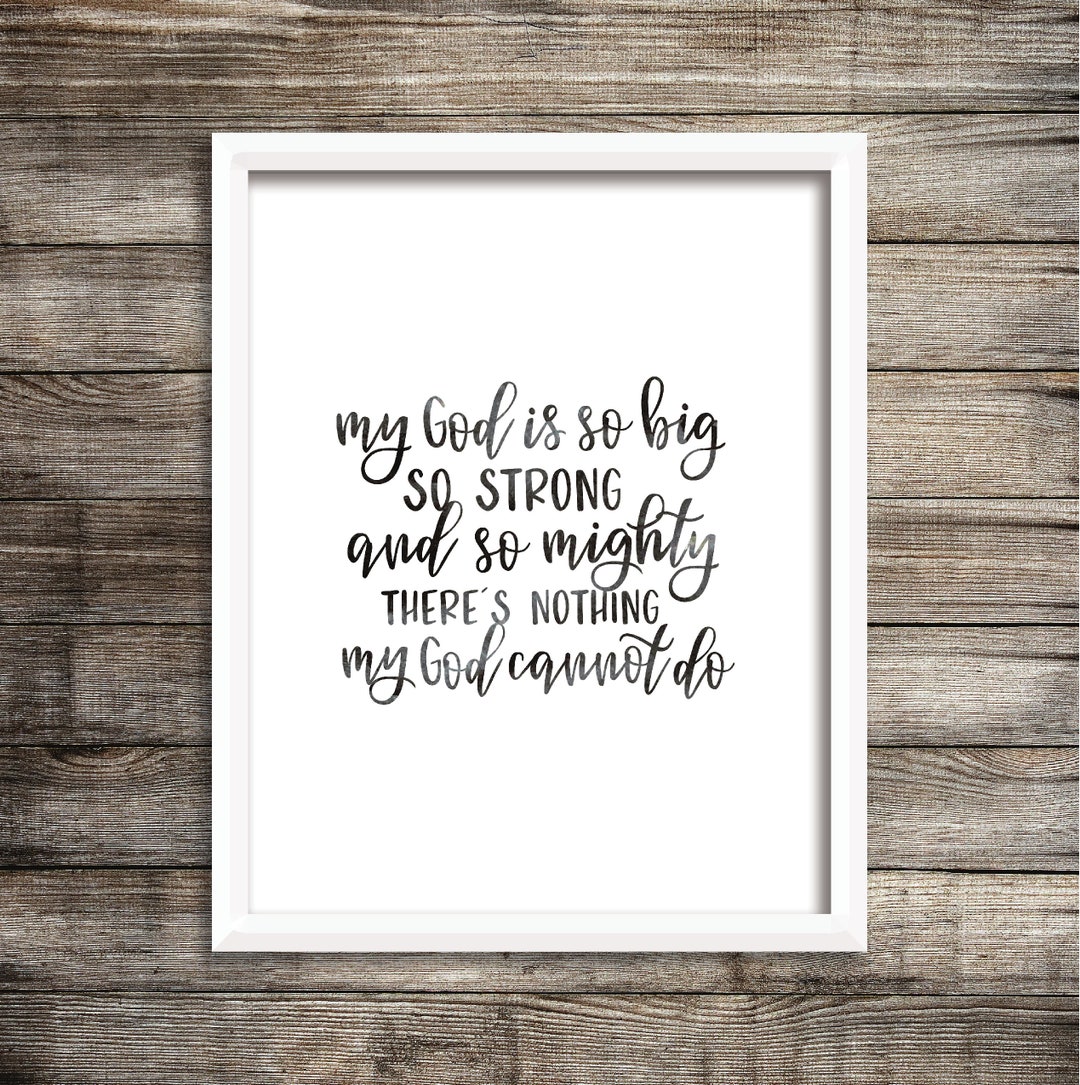 my God is so big
SO STRONG
and so mighty
THERE'S NOTHING
my God cannot do